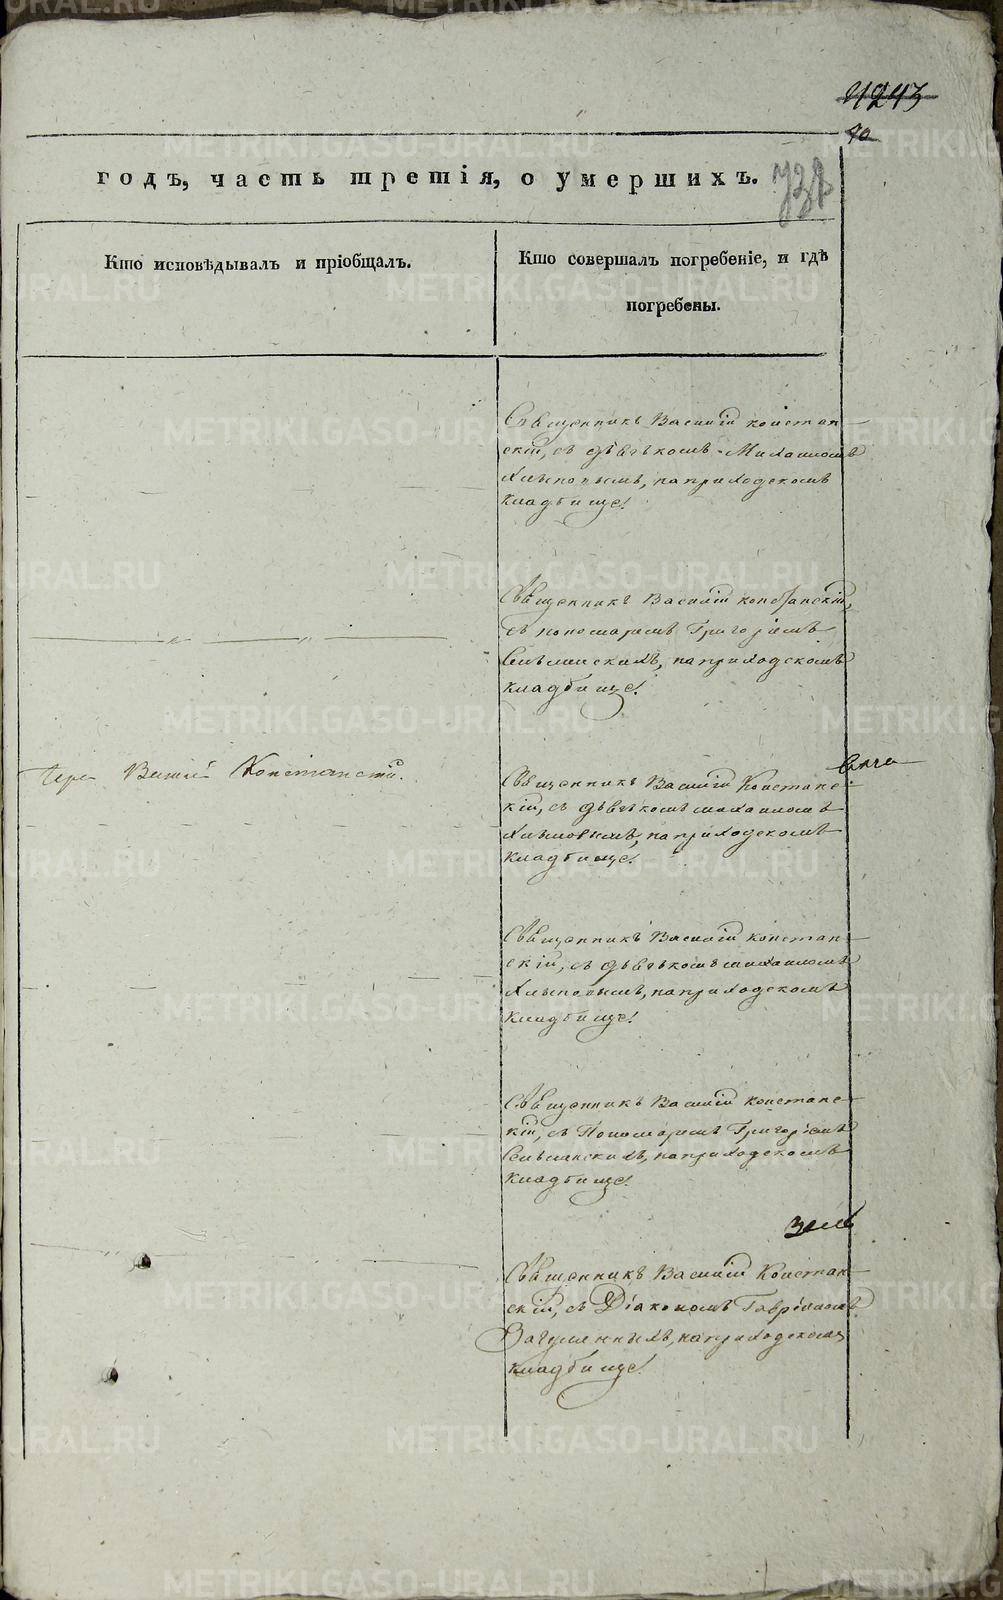 4243
40
годъ, часть третія, о умершихъ.
Кто исповѣдывалъ и пріобщалъ.
Кто совершалъ погребеніе, и гдѣ
погребены.
Священникъ Василій констан-
скій, съ дьячкомъ Михаиломъ
на приходскомъ
кладбище.
Священникъ Василій констанскій,
съ пономаремъ Григоріемъ
на приходскомъ
кладбище.
Іерей Василій Констанскій.
Священникъ Василій Констанс-
кій, съ дьячкомъ михаиломъ
на приходскомъ
кладбище.
Священникъ Василій констан-
скій, съ дьячкомъ михаиломъ
на приходскомъ
кладбище.
Священникъ Василій констанс-
кій, съ Пономаремъ Григоріемъ
на приходскомъ
кладбище.
Священникъ Василій Констан-
скій, съ Діакономъ Гавріиломъ
на приходскомъ
кладбище.
METRIKI.GASO-URAL.RU